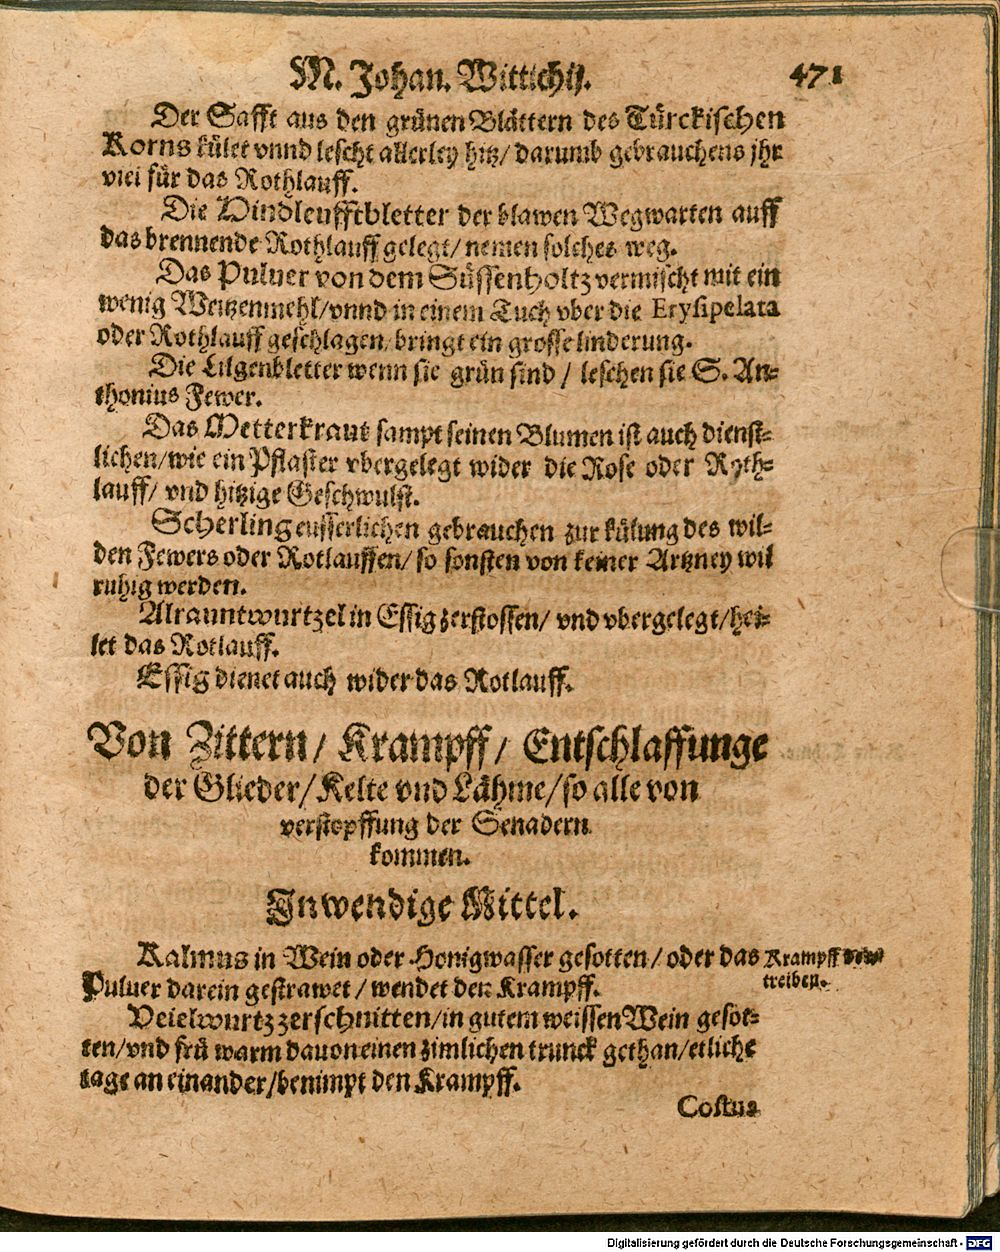 M. Johan. Wittichij. 471
Der Safft aus den grünen Blättern des Türckischen
Korns kület vnnd lescht allerley hitz/ darumb gebrauchens jhr
viel für das Rothlauff.
Die Windleufftbletter der blawen Wegwarten auff
das brennende Rothlauff gelegt/ nemen solches weg.
Das Puluer von dem Süssenholtz vermischt mit ein
wenig Weitzenmehl/ vnnd in einem Tuch vber die Erysipelata
oder Rothlauff geschlagen/ bringt ein grosse linderung.
Die Lilgenbletter wenn sie grün sind / leschen sie S. An-
thonius Fewer.
Das Metterkraut sampt seinen Blumen ist auch dienst-
lichen/ wie ein Pflaster vbergelegt wider die Rose oder Roth-
lauff/ vnd hitzige Geschwulst.
Scherling eusserlichen gebrauchen zur külung des wil-
den Fewers oder Rotlauffen/ so sonsten von keiner Artzney wil
ruhig werden.
Alrauntwurtzel in Essig zerstossen/ vnd vbergelegt/ hei-
let das Rotlauff.
Essig dienet auch wider das Rotlauff.
Von Zittern/ Krampff/ Entschlaffunge
der Glieder/ Kelte vnd Lähme/ so alle von
verstopffung der Senadern
kommen.
Inwendige Mittel.
Kalmus in Wein oder Honigwasser gesotten/ oder das
Puluer darein gestrawet / wendet den Krampff.
Krampff
treiben.
Veielwurtz zerschnitten/ in gutem weissen Wein gesot-
ten/ vnd frü warm dauon einen zimlichen trunck gethan/ etliche
tage an einander/ benimpt den Krampff.
Costus
Digitalisierung gefördert durch die Deutsche Forschungsgemeinschaft - DFG